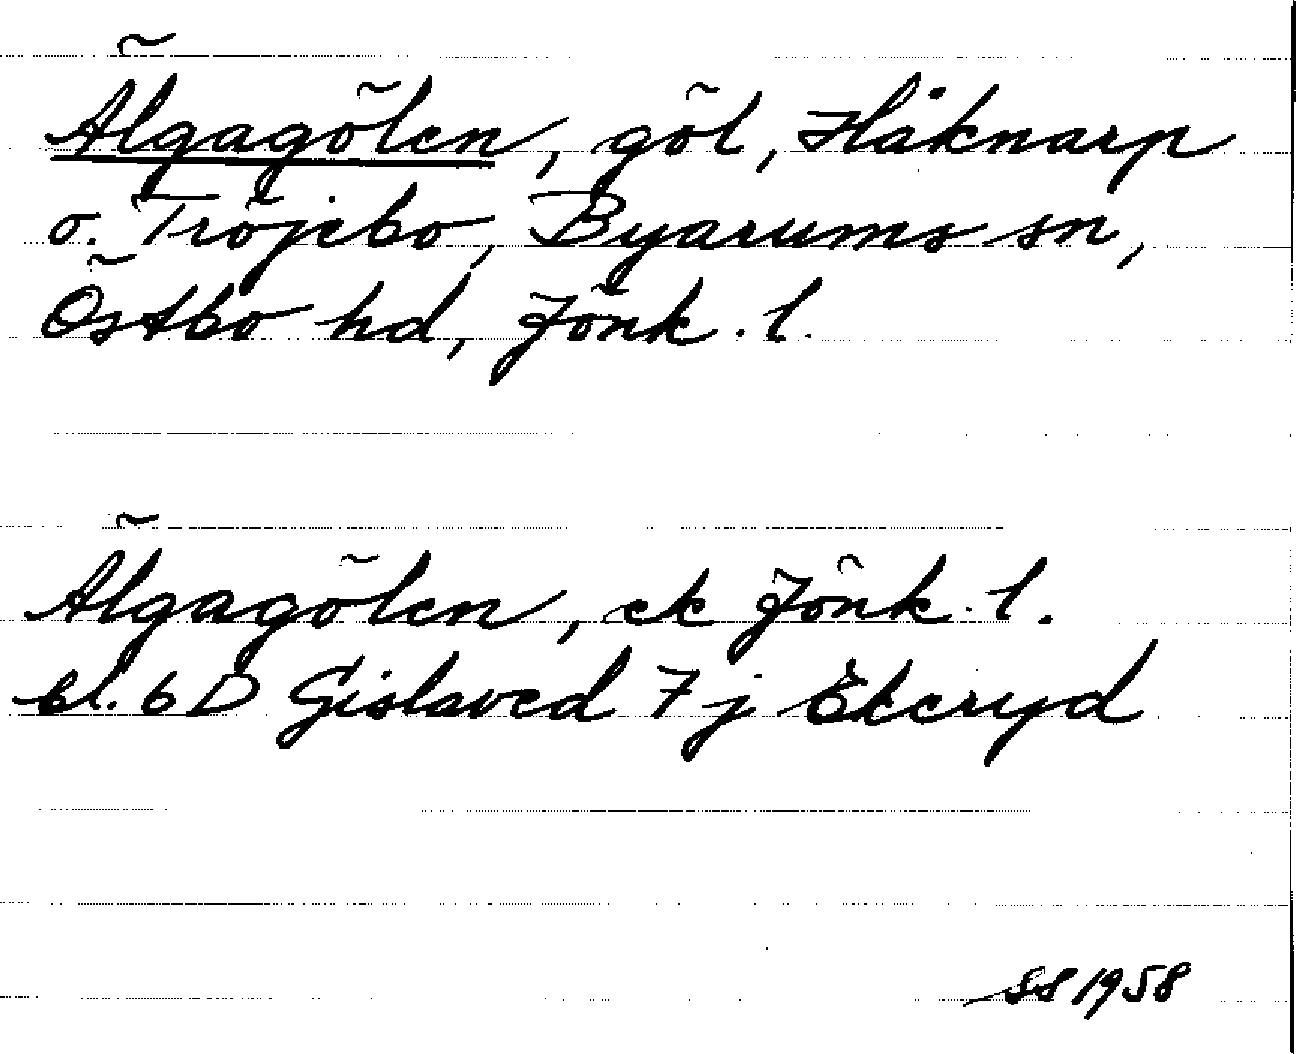 Älgagölen, göl, Håknarp
o. Tröjebo, Byarums sn,
Östbo hd, Jönk. l.
Älgagölen, ek Jönk. l.
bl. 6 D Gislaved 7 j Ekeryd
SS 1958